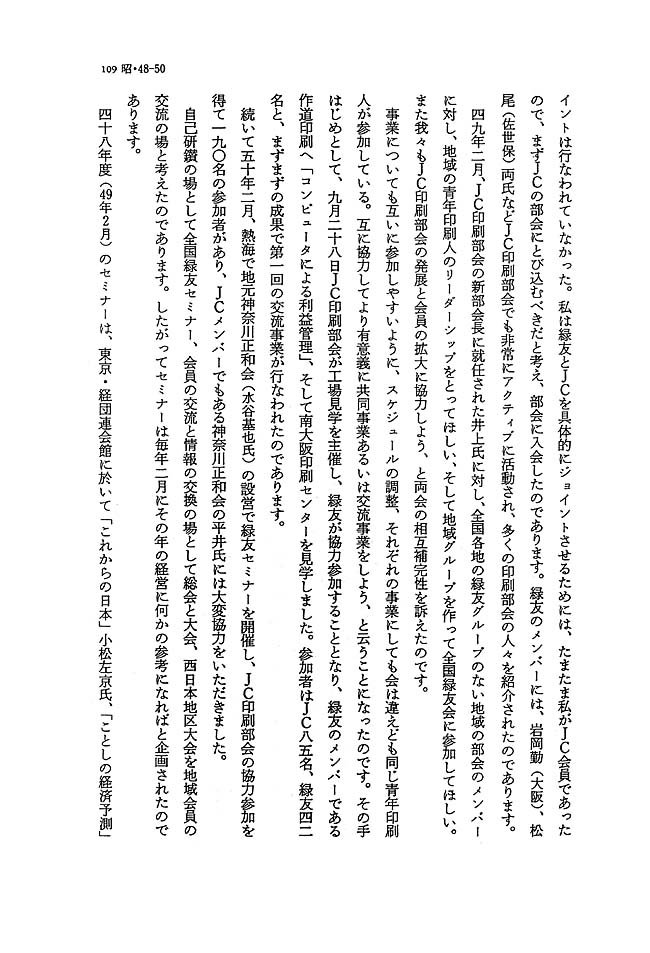 109 昭・48-50
イントは行なわれていなかった。私は緑友とJCを具体的にジョイントさせるためには、たまたま私がJC会員であった
ので、まずJCの部会にとび込むべきだと考え、部会に入会したのであります。緑友のメンバーには、岩岡勤（大阪）、松
尾（佐世保）両氏などJC印刷部会でも非常にアクティブに活動され、多くの印刷部会の人々を紹介されたのであります。
四九年二月、JC印刷部会の新部会長に就任された井上氏に対し、全国各地の緑友グループのない地域の部会のメンバー
に対し、地域の青年印刷人のリーダーシップをとってほしい、そして地域グループを作って全国緑友会に参加してほしい。
また我々もJC印刷部会の発展と会員の拡大に協力しよう、と両会の相互補完性を訴えたのです。
事業についても互いに参加しやすいように、スケジュールの調整、それぞれの事業にしても会は違えども同じ青年印刷
人が参加している。互に協力してより有意義に共同事業あるいは交流事業をしよう、と云うことになったのです。その手
はじめとして、九月二十八日JC印刷部会が工場見学を主催し、緑友が協力参加することとなり、緑友のメンバーである
作道印刷へ「コンピュータによる利益管理」、そして南大阪印刷センターを見学しました。参加者はJC八五名、緑友四二
名と、まずまずの成果で第一回の交流事業が行なわれたのであります。
続いて五十年二月、熱海で地元神奈川正和会（水谷基也氏）の設営で緑友セミナーを開催し、JC印刷部会の協力参加を
得て一九〇名の参加者があり、JCメンバーでもある神奈川正和会の平井氏には大変協力をいただきました。
自己研鑽の場として全国緑友セミナー、会員の交流と情報の交換の場として総会と大会、西日本地区大会を地域会員の
交流の場と考えたのであります。したがってセミナーは毎年二月にその年の経営に何かの参考になればと企画されたので
あります。
四十八年度（49年2月）のセミナーは、東京・経団連会館に於いて「これからの日本」小松左京氏、「ことしの経済予測」